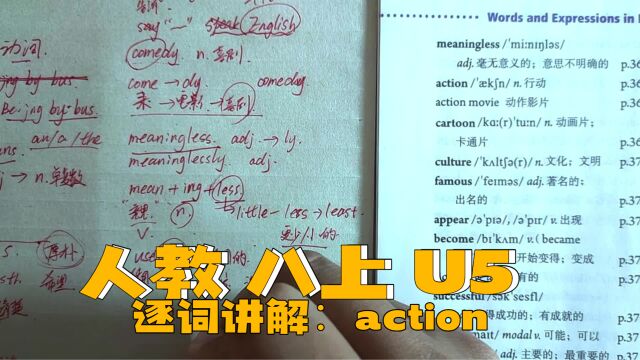 say "—" speak English
动词
comedy n. 喜剧
ing by bus
come → dy. comedy
Beijing by bus.
来 → 电影 → 喜剧
an/a/the
meaningless. adj. → ly.
meaninglessly. adj.
→ n. 单复数
mean + ing + less
n. little - less → least.
V. 更少/小的
use 的
希望
Words and Expressions in
meaningless /'mi:nɪŋləs/
adj. 毫无意义的；意思不明确的 p.36
action /'ækʃn/ n. 行动
action movie 动作影片 p.36
cartoon /kɑ:(r)'tu:n/ n. 动画片；
卡通片 p.36
culture /'kʌltʃə(r)/ n. 文化；文明 p.37
famous /'feɪməs/ adj. 著名的；
出名的 p.37
appear /ə'pɪə/, /ə'pɪr/ v. 出现 p.37
become /bɪ'kʌm/ v. (became
开始变得；变成 p.37
有的 p.37
successful /sək'sesfl/
得成功的；有成就的 p.37
modal v. 可能；可以 p.37
adj. 主要的；最重要的 p.37
人教 八上 U5
逐词讲解：action